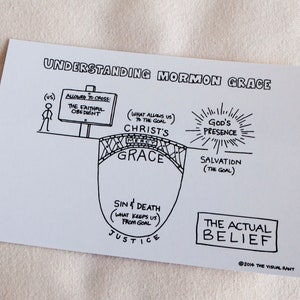 UNDERSTANDING MORMON GRACE
(US)
ALLOWED TO CROSS:
THE FAITHFUL
OBEDIENT
(WHAT ALLOWS US
TO THE GOAL)
CHRIST'S
GRACE
GOD'S
PRESENCE
SALVATION
(THE GOAL)
SIN & DEATH
(WHAT KEEPS US
FROM GOAL)
JUSTICE
THE ACTUAL
BELIEF
©2016 THE VISUAL RANT